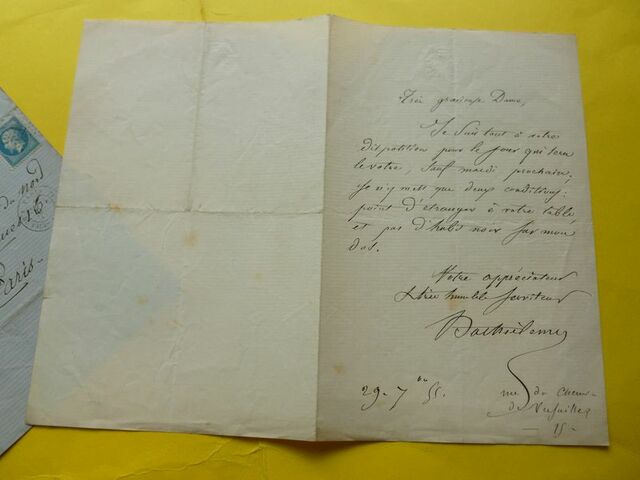 Très gracieuse Dame,
Je suis tout à votre
disposition pour le jour qui sera
le vôtre, sauf mardi prochain.
Je n'y mets que deux conditions:
point d'étranger à votre table,
et pas d'habit noir sur mon
dos.
Votre appréciateur
& très humble serviteur
Barthélemy
29. 7bre 55.
rue du Chemin
de Versailles
— 15 —
du Nord
16.
Paris